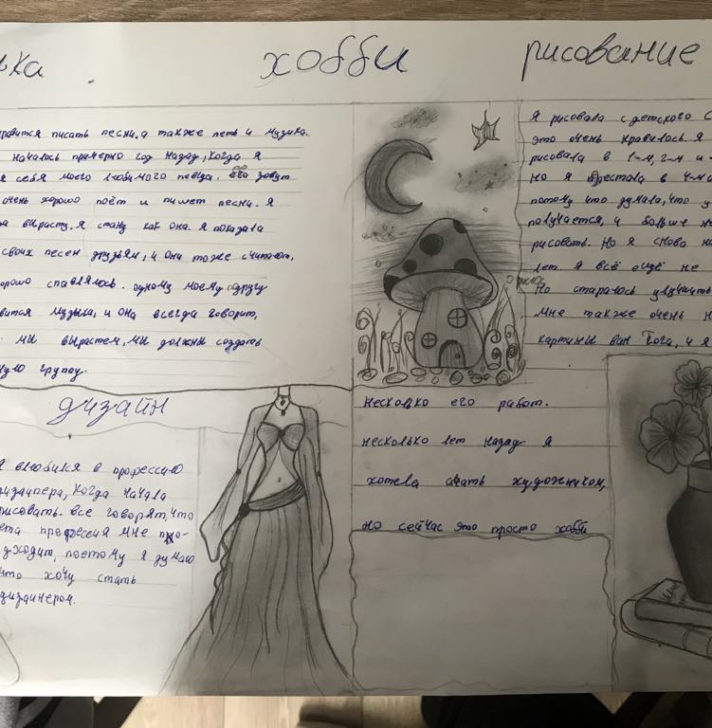 хобби
рисование
нравится писать песни, а также петь и музыка.
началось примерно год назад, когда я
я себя моего любимого певца. его зовут
очень хорошо поёт и пишет песни. я
вырасту, я стану как она. я показала
своих песен друзьям, и они тоже считают,
хорошо справлялось. одному моему другу
музыка, и она всегда говорит,
мы вырастем, мы должны создать
группу.
дизайн
я влюбился в профессию
дизайнера, когда начала
рисовать. все говорят, что
эта профессия мне по-
дходит, поэтому я думаю
что хочу стать
дизайнером.
Я рисовала с детского
это очень нравилось. я
рисовала в 1-м, 2-м и
но я в 4-м
потому что думала, что у
получается, и больше не
рисовать. Но я снова
лет я всё ещё не
но старалось улучшить
мне также очень
картины ван гога, и я
несколько его работ.
несколько лет назад я
хотела стать художником,
но сейчас это просто хобби